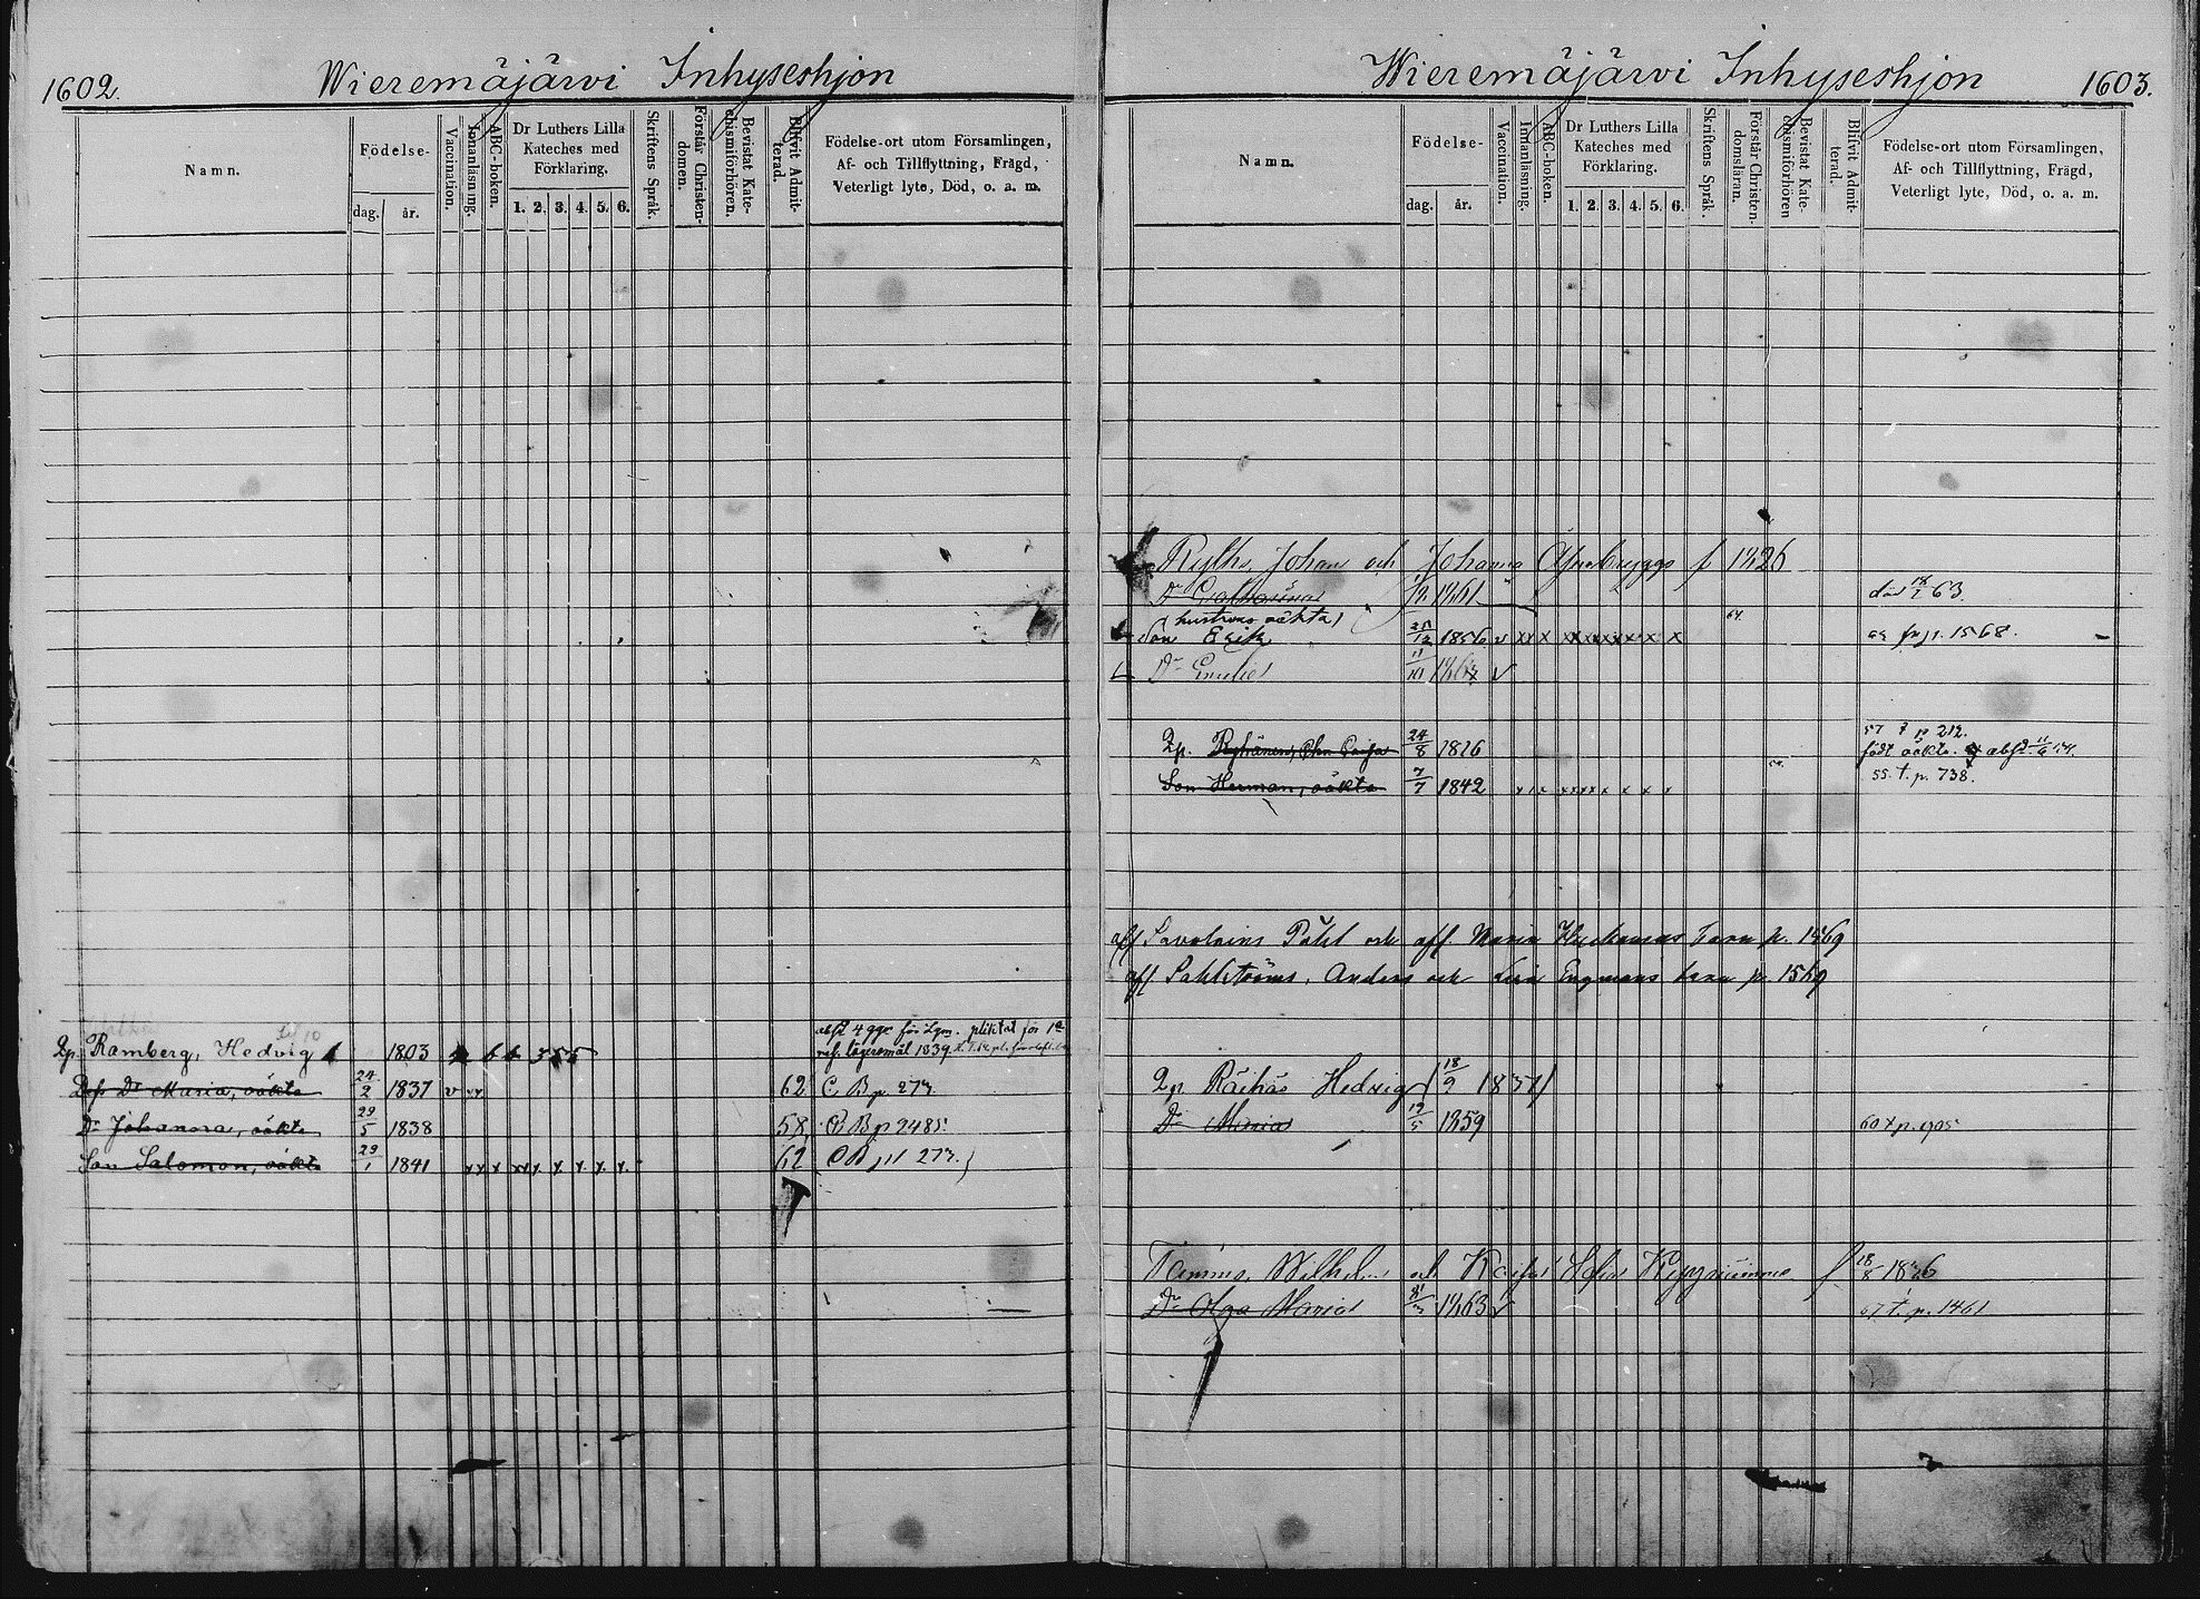 1602.
Wieremäjärvi Inhyseshjon
Namn.
Födelse-
dag.
år.
Vaccination.
Innanläsning.
ABC-boken.
Dr Luthers Lilla
Kateches med
Förklaring.
1. 2. 3. 4. 5. 6.
Skriftens Språk.
Förstår Christen-
domen.
Bevistat Kate-
chismiförhören.
Blifvit Admit-
terad.
Födelse-ort utom Församlingen,
Af- och Tillflyttning, Frägd,
Veterligt lyte, Död, o. a. m.
absl 4 ggr för Lgm. pliktat för 1a
Qp. Ramberg, Hedvig 1803 lägersmål 1839
Dr Maria, oäkta 24/2 1837 v 62 C. B p 273.
Dr Johanna, oäkta 29/5 1838 58 C B p 2485
Son Salomon, oäkta 29/1 1841 x x x x x x x x x 62 C B p 273.
Wieremäjärvi Inhyseshjon
1603.
Namn.
Födelse-
dag.
år.
Vaccination.
Innanläsning.
ABC-boken.
Dr Luthers Lilla
Kateches med
Förklaring.
1. 2. 3. 4. 5. 6.
Skriftens Språk.
Förstår Christen-
domsläran.
Bevistat Kate-
chismiförhören
Blifvit Admit-
terad.
Födelse-ort utom Församlingen,
Af- och Tillflyttning, Frägd,
Veterligt lyte, Död, o. a. m.
Johan och Johanna f 1826
Dr 1861 död 63.
hustruns oäkta
Son Erik 1856 v x x x x x x x x x x 1568.
Dr Emelie 11/10 v
p 212.
Qp. 24/8 1826 född oäkta. absl.
Son Herman, oäkta 7/7 1842 x x x x x x x x x 55. t. p. 738.
afl. Maria barn p. 1569
afl. Anders och Lisa Engmans barn p. 1569
Qp Räihäs Hedvig (18/9 18
Dr Maria 19/5 1859 60 t p. 905
Wilhelm och Kaisa Sofia f 18/8
Dr Olga Maria 1863 v 67 t. p. 1461